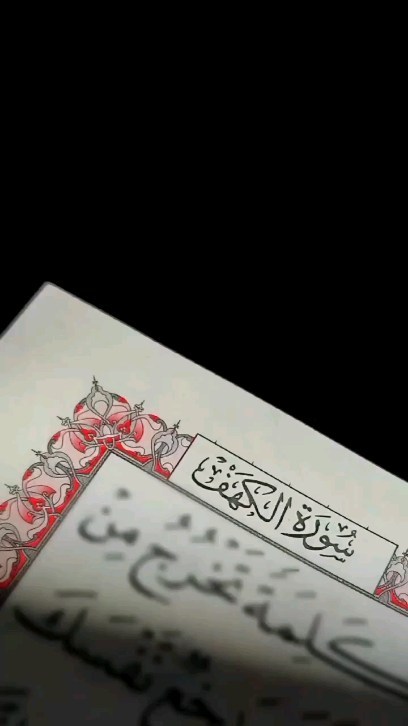 سُورَةُ الكَهْفِ
كَلِمَةً تَخْرُجُ مِنْ
نَّفْسَكَ